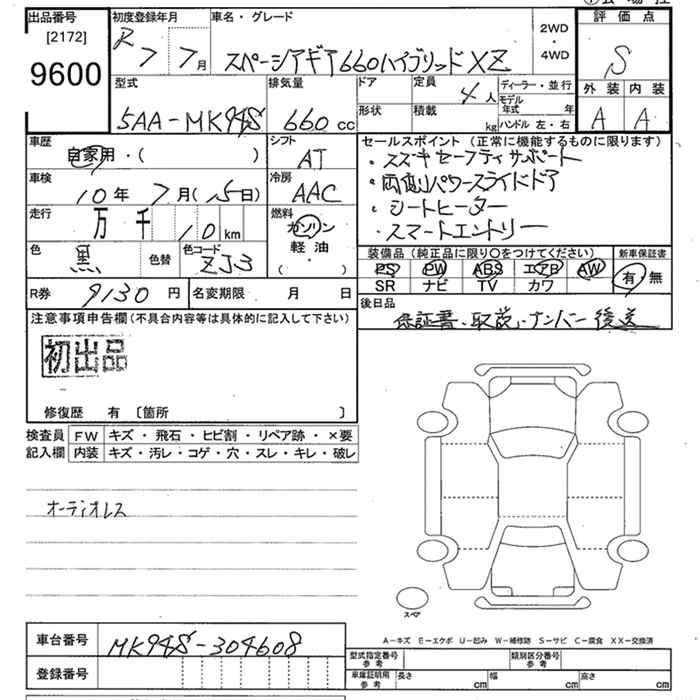 出品番号
[2172]
9600
初度登録年月
R 7 7月
車名・グレード
スペーシアギア660ハイブリッドXZ
2WD
・
4WD
評価点
S
外装 内装
A A
型式
5AA-MK94S
排気量
660 cc
ドア
定員
4人
ディーラー・並行
形状
積載
kg
モデル年式 年
ハンドル 左・右
車歴
自家用・( )
シフト
AT
車検
10年 7月(15日)
冷房
AAC
走行
万 千 10 km
燃料
ガソリン
軽油
( )
色
黒
色替
色コード
ZJ3
R券 9130 円
名変期限 月 日
セールスポイント(正常に機能するものに限ります)
・スズキセーフティサポート
・両側パワースライドドア
・シートヒーター
・スマートエントリー
装備品(純正品に限り〇をつけてください)
新車保証書
PS PW ABS エアB AW
SR ナビ TV カワ
有・無
後日品
保証書、取説、ナンバー後送
注意事項申告欄(不具合内容等は具体的に記入して下さい)
初出品
修復歴 有 〔箇所 〕
検査員
記入欄
FW キズ・飛石・ヒビ割・リペア跡・×要
内装 キズ・汚レ・コゲ・穴・スレ・キレ・破レ
オーディオレス
スペア
車台番号 MK94S-304608
登録番号
A-キズ E-エクボ U-凹み W-補修跡 S-サビ C-腐食 XX-交換済
型式指定番号
参考
類別区分番号
参考
車庫証明用
参考
長さ cm 幅 cm 高さ cm